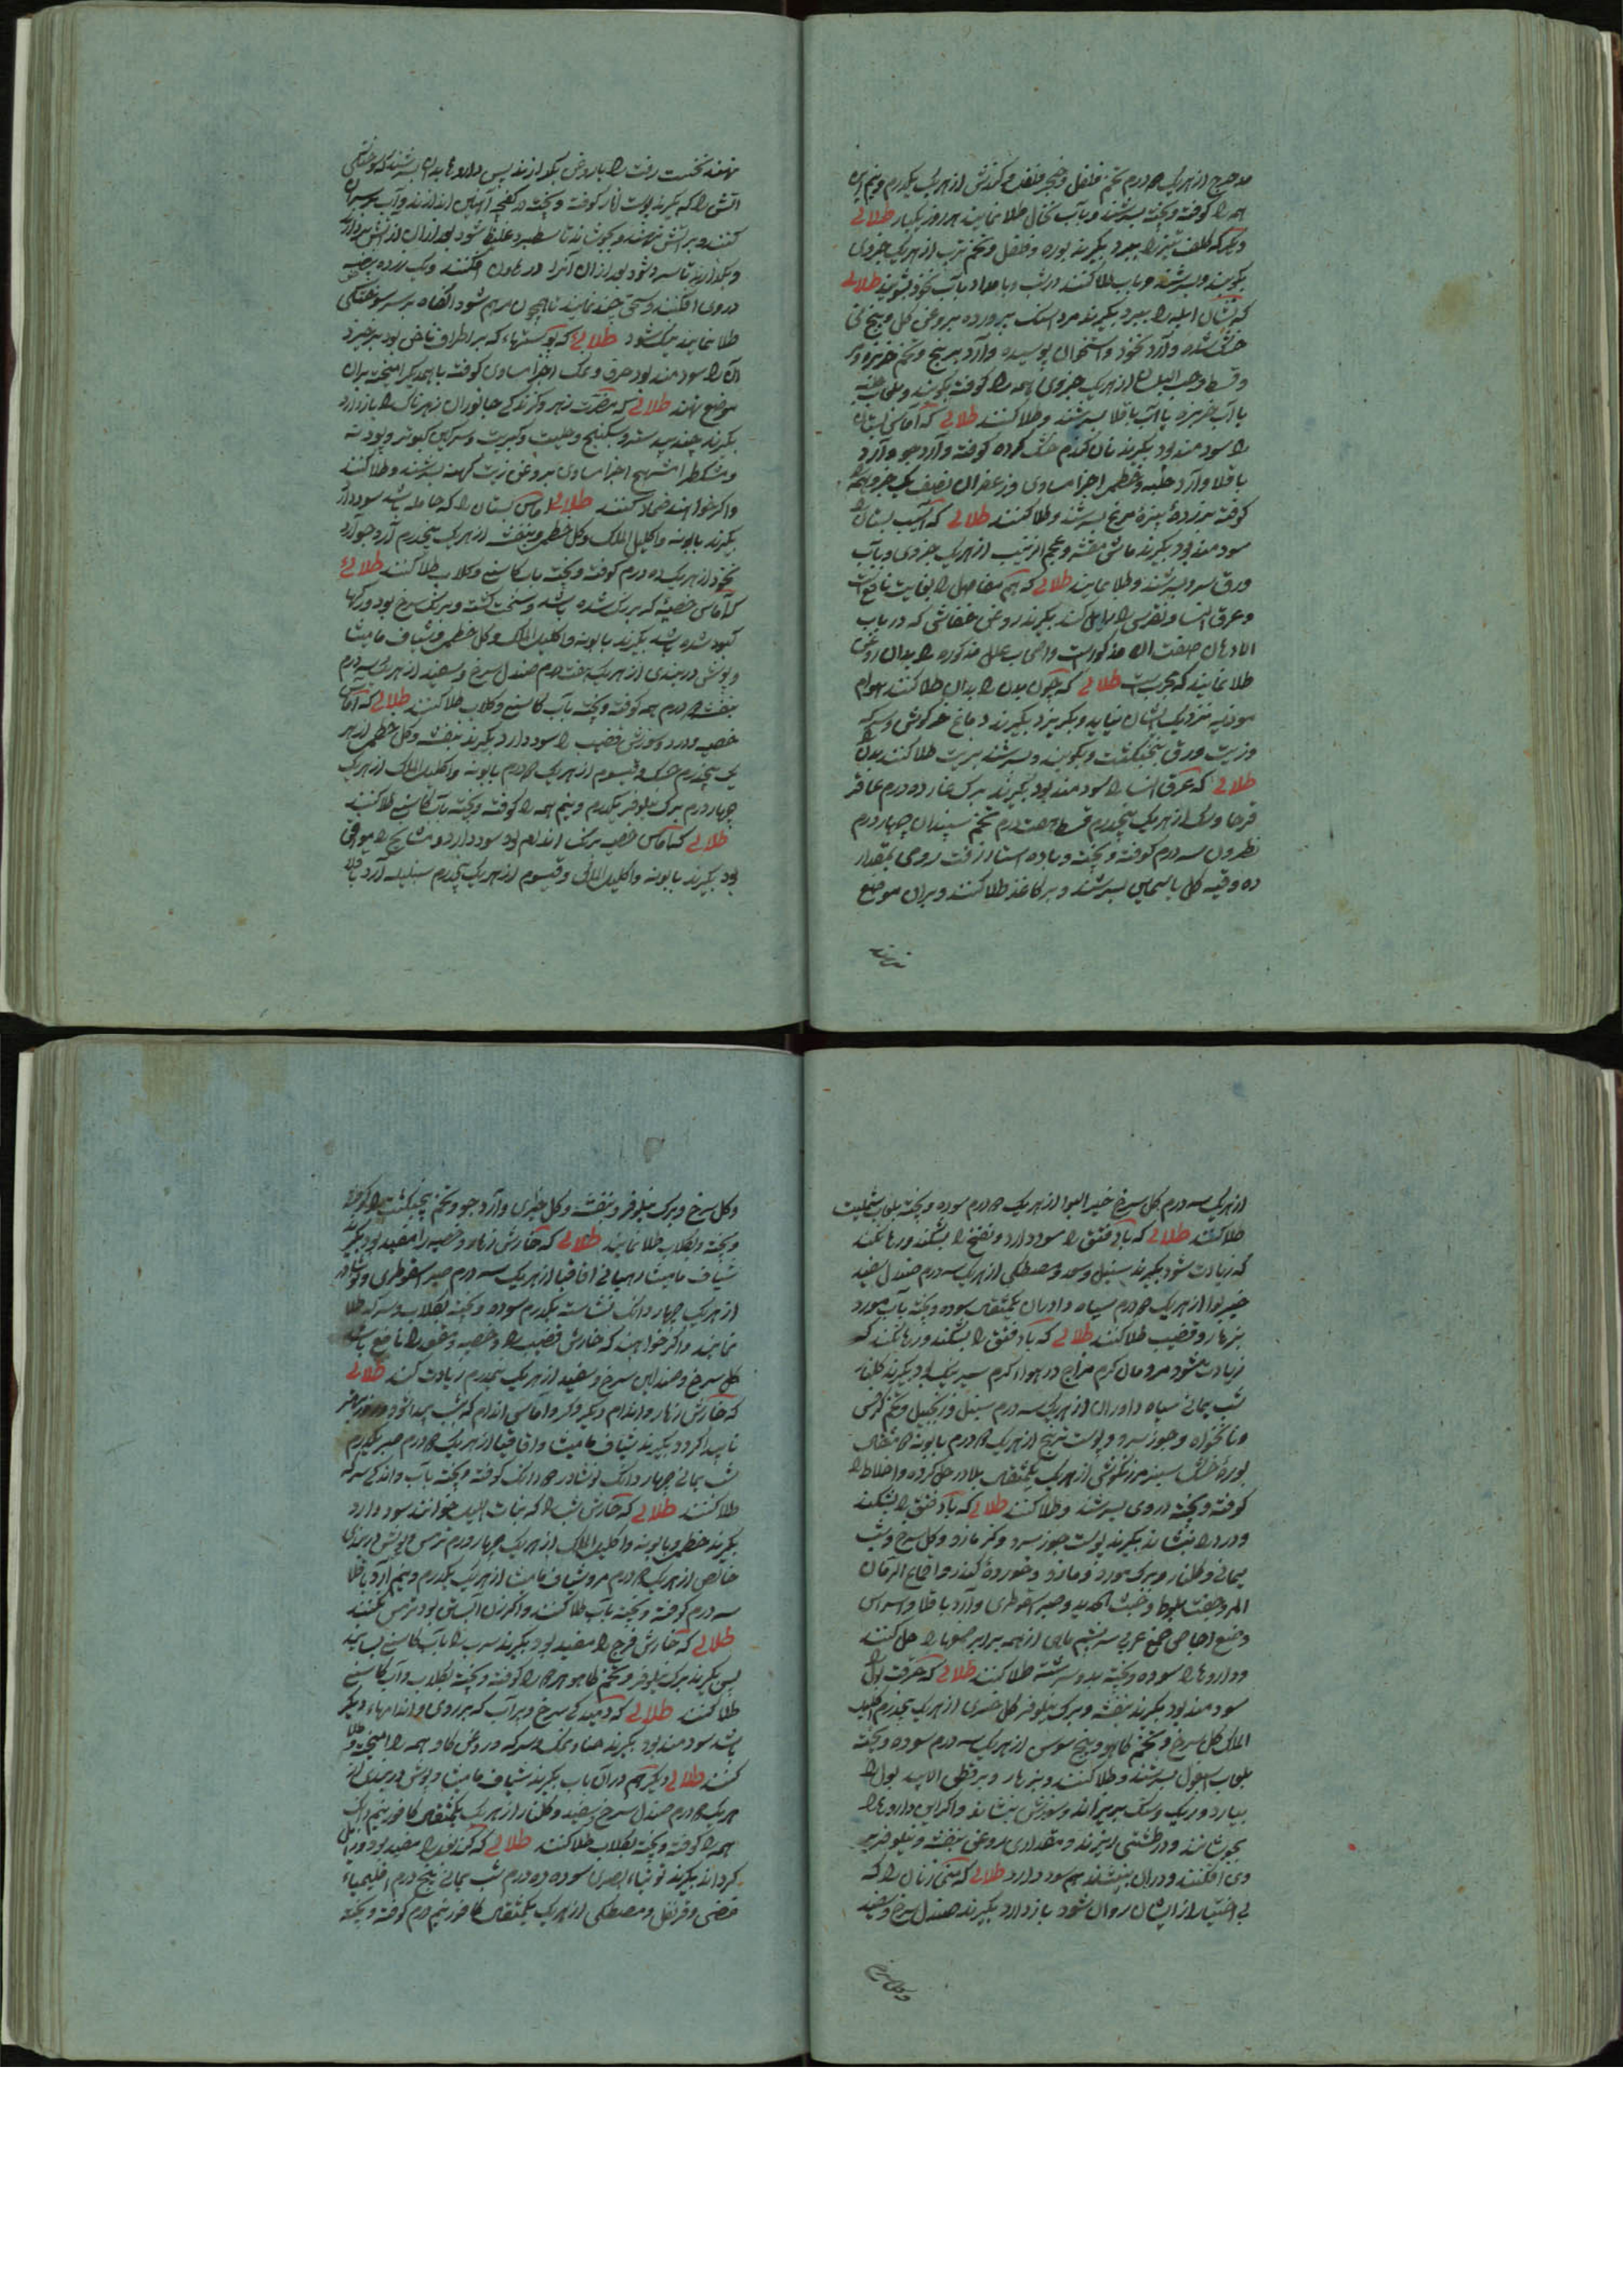 همه را کوفته و پخته بسرشند و بآب نخال طلا نمایند هر روز یکبار طلائی
دیگر که کلف تیز را ببرد بگیرند بوره و فلفل و تخم ترب از هر یک جزوی
بکوبند و بسرشند و بآب طلا کنند در شب و بامداد بآب نخود بشویند طلائی
که نشان ابله را ببرد بگیرند مرداسنک پرورده بروغن کل و بیخ نی
خشک شده و آرد نخود و استخوان پوسیده و آرد برنج و تخم خرپزه و
و قسط و حب البان از هر یک جزوی همه را کوفته
یا آب خرپزه یا آب باقلا بسرشند و طلا کنند طلائی که آماس پستان
را سودمند بود بگیرند نان کندم خشک کرده کوفته و آرد جو و آرد
باقلا و آرد حلبه و خطمی اجزا مساوی و زعفران نصف یک جزو همه
کوفته بزرده بیضه مرغ بسرشند و طلا کنند طلائی که آسیب پستان را
سودمند بود بگیرند ماش مقشر و عجم الزبیب از هر یک جزوی و بآب
ورق سرو بسرشند و طلا نمایند طلائی که هم مفاصل را بغایت نافع است
و عرق النسا و نقرس را زایل کند بگیرند روغن خفاشی که در باب
الادهان صفت آن مذکور است و اصحاب علل مذکوره را بدان روغن
طلا نمایند که مجرب است طلائی که چون بدن را بدان طلا کنند هوام
موذیه نزدیک ایشان نیاید و بگریزد بگیرند دماغ خرکوش و سرکه
و زیت و ورق پنجنکشت و بکوبند و بسرشند بزیت طلا کنند بدن را
طلائی که عرق النسا را سودمند بود بگیرند برک غار ده درم عاقر
قرحا و از هر یک پنجدرم قسط هفت درم تخم سپندان چهار درم
نطرون سه درم کوفته و پخته و باده استار زفت رومی بمقدار
ده وقیه کل یاسمین بسرشند و بر کاغذ طلا کنند و بران موضع
نهند
نهند نخست زفت را با روغن بکدازند پس داروها بدان بسرشند که سوختکی
آتش را که بگیرند پوست انار کوفته و پخته در کفچه آهنین اندازند و آب بر سر آن
کنند و بر آتش نهند و بجوشانند تا سطبر و غلیظ شود بعد ازان از آتش بردارند
و بکذارند تا سرد شود بعد ازان آنرا در هاون افکنند و یک زرده بیضه
در وی افکنند و سحق چند نمایند تا همچون مرهم شود آنکاه بر سر سوختکی
طلا نمایند نیک شود طلائی که پوستهاء که بر اطراف ناخن بود برخیزد
آن را سودمند بود حرف و نمک اجزا مساوی کوفته با همدیکر آمیخته بران
موضع نهند طلائی که مضرت زهر و کزندکی جانوران زهرناک را باز دارد
بگیرند جندبیدستر و سکبینج و حلتیت و کبریت و سرکین کبوتر و پودنه
و مشکطرامشیع اجزا مساوی بروغن زیت کهنه بسرشند و طلا کنند
و اکر خواهند ضماد کنند طلائی آماس پستان را که حامله باشد سود دارد
بگیرند بابونه و اکلیل الملک و کل خطمی و بنفشه از هر یک پنجدرم آرد جو آرد
نخود از هر یک ده درم کوفته و پخته بآب کاسنی و کلاب طلا کنند طلائی
که آماس خصیه که بزرک شده باشد و سخت کشته و برنک سرخ بود و رکها
کبود شده باشد بگیرند بابونه و اکلیل الملک و کل خطمی و شیاف مامیثا
و پوش دربندی از هر یک هفت درم صندل سرخ و سفید از هر یک سه درم
بنفشه درم همه کوفته و پخته بآب کاسنی و کلاب طلا کنند طلائی که آماس
خصیه و درد و سوزش قضیب را سود دارد بگیرند بنفشه و کل خطمی از هر
یک پنجدرم خسک و قیسوم از هر یک درم بابونه و اکلیل الملک از هر یک
چهار درم برک نیلوفر یکدرم و نیم همه را کوفته و پخته بآب کاسنی طلا کنند
طلائی که آماس خصیه برنک اندام بود سود دارد و مشایخ را موافق
بود بگیرند بابونه و اکلیل الملک و قیسوم از هر یک پنجدرم سنبل آرد باقلا
از هر یک سه درم کل سرخ خیربوا از هر یک درم سوده و پخته بلعاب شنبلیت
طلا کنند طلائی که باد فتق را سود دارد و نفخ را بشکند و رها نکند
که زیادت شود بگیرند سنبل و سعد و مصطکی از هر یک سه درم صندل سفید
خیربوا از هر یک درم سیاه دادوران یکمثقال سوده و پخته بآب مورد
بزهار و قضیب طلا کنند طلائی که باد فتق را بشکند و رها نکند که
زیادت شود مردمان کرم مزاج در هواء کرم سیر نیک بود بگیرند کلنار
شب یمانی سیاه داوران از هر یک سه درم سنبل و زنجبیل و تخم کرفس
و نانخواه و جوز سرو و پوست ترنج از هر یک درم بابونه مثقال
کوفته و پخته در وی بسرشند و طلا کنند طلائی که باد فتق را بشکند
و درد را بنشاند بگیرند پوست جوز سرو و کزمازو و کل سرخ و شب
یمانی و کلنار و برک مورد و مازو و خورده کندر و اقماع الرمان
المر و جفت بلوط و خبث الحدید و صبر اسقوطری و آرد باقلا و
و صمغ اجاص صمغ عربی سریشم ماهی از همه برابر صمغها را حل کنند
و داروها را سوده و پخته بدو سرشته طلا کنند طلائی که حرقت بول را
سودمند بود بگیرند بنفشه و برک نیلوفر کل از هر یک پنجدرم اکلیل
الملک کل سرخ و تخم کاهو و بیخ سوس از هر یک سه درم سوده و پخته
بلعاب اسبغول بسرشند و طلا کنند و بزهار و بر قطن بول را
بیارد و ریک و سنک بریزاند و سوزش بنشاند و اکر این داروها را
بجوشانند و در طشتی ریزند و مقداری روغن بنفشه و نیلوفر بر
وی افکنند و دران بنشینند هم سود دارد طلائی که منی زنان را که
بی اختیار از ایشان روان شود باز دارد بگیرند صندل سرخ و سفید
و کل سرخ
و کل سرخ و برک نیلوفر و بنفشه و کل خیری و آرد جو و تخم پنجنکشت
و پخته و بکلاب طلا نمایند طلائی که خارش زهار و خصیه را مفید بود بگیرند
شیاف مامیثا یمانی اقاقیا از هر یک سه درم صبر اسقوطری و نوشادر
از هر یک چهار دانک نشاسته یکدرم سوده و پخته بکلاب و سرکه طلا
نمایند و اکر خواهند که خارش قضیب را و خصیه و مقعد را نافع باشد
کل سرخ و صندلین سرخ و سفید از هر یک نیمدرم زیادت کنند طلائی
که خارش زهار و اندام دیکر و کر و آماس اندام که شب پیدا شود و روز
ناپیدا کردد بگیرند شیاف مامیثا و اقاقیا از هر یک درم صبر یکدرم
شب یمانی چهار دانک نوشادر دانک کوفته و پخته بآب و اندکی سرکه
طلا کنند طلائی که خارش شب را که بنات اللیل خوانند سود دارد
بگیرند خطمی و بابونه و اکلیل الملک از هر یک چهار درم ترمس پوش دربندی
خالص از هر یک درم مر و شیاف مامیثا از هر یک یکدرم و نیم آرد باقلا
سه درم کوفته و پخته بآب طلا کنند و اکر زن آبستن بود ترمس نکنند
طلائی که خارش فرج را مفید بود بگیرند سرب را بآب کاسنی بسایند
پس بگیرند برک نیلوفر و تخم کاهو هر دو را کوفته و پخته بکلاب و آب کاسنی
طلا کنند طلائی که دمیدکی سرخ و پرآب که بر روی و اندامهاء دیکر
باشد سودمند بود بگیرند حناء و نمک و سرکه و روغن کاو همه را آمیخته و طلا
کنند طلائی دیکر هم دران باب بگیرند شیاف مامیثا و پوش دربندی از
هر یک درم صندل سرخ و سفید و کلنار از هر یک یکمثقال کافور نیم دانک
همه را کوفته و پخته بکلاب طلا کنند طلائی که کند بغل را مفید بود و زایل
کرداند بگیرند توتیاء بصری سوده ده درم شب یمانی پنج درم اقلیمیاء
فضی و قرنفل و مصطکی از هر یک یکمثقال کافور نیم درم کوفته و پخته